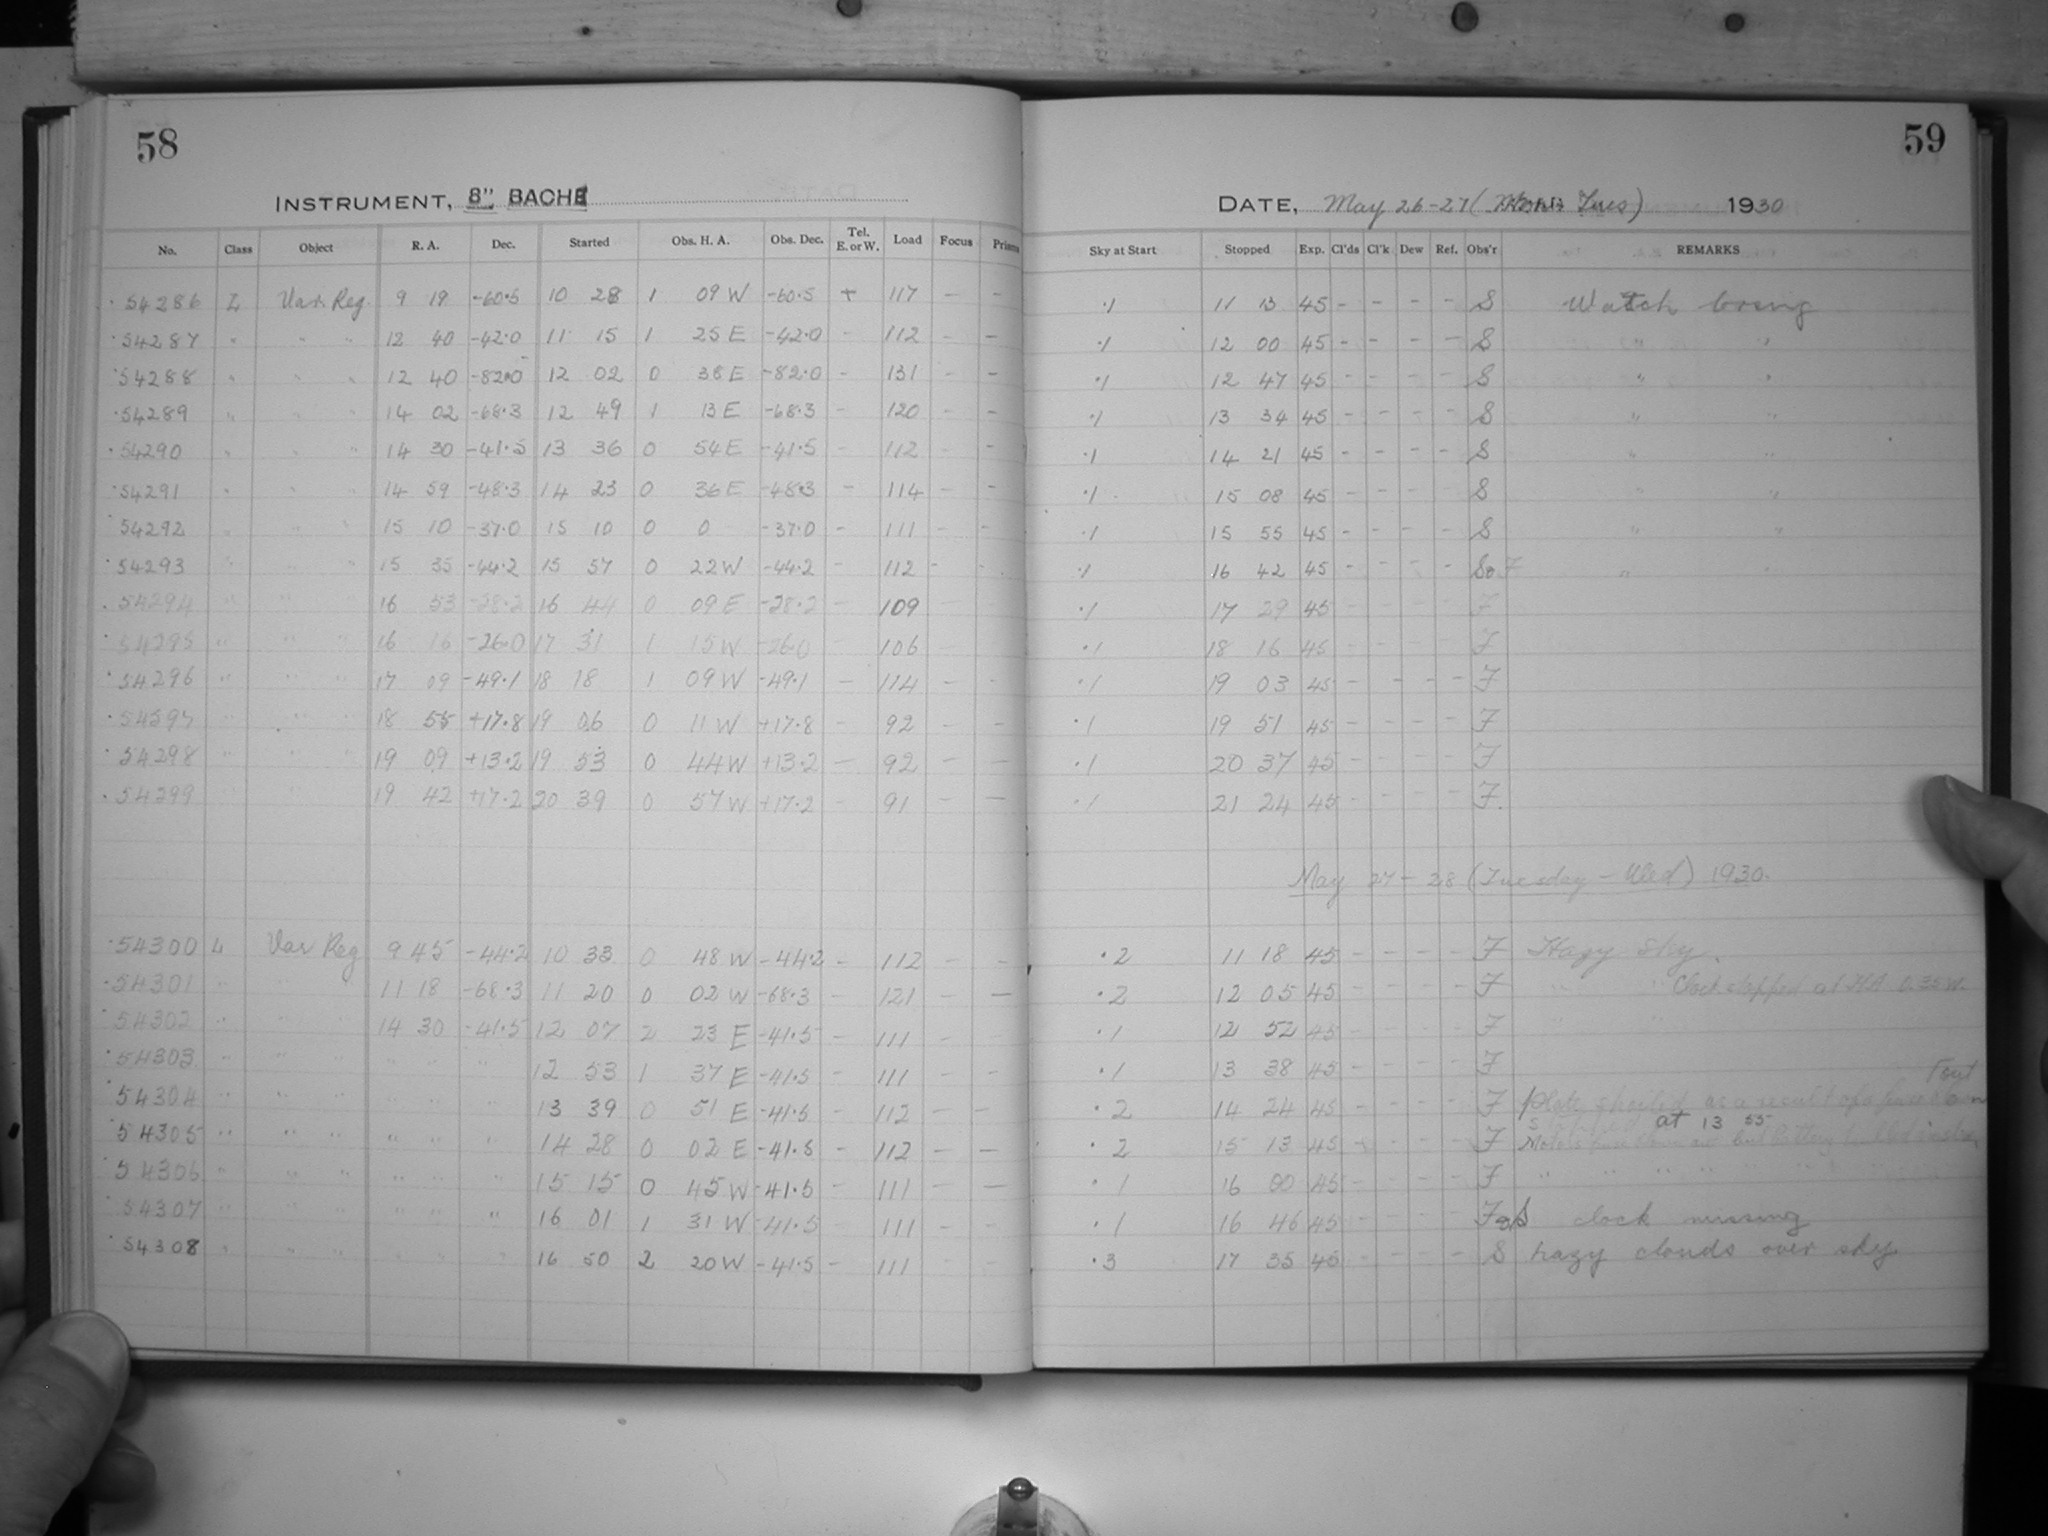 58
INSTRUMENT, 8" BACHE
No. Class Object R. A. Dec. Started Obs. H. A. Obs. Dec. Tel. E. or W. Load Focus Prisms
54286 L Var Reg. 9 19 -60.5 10 28 1 09 W -60.5 + 117 - -
54287 " " " 12 40 -42.0 11 15 1 25 E -42.0 - 112 - -
54288 " " " 12 40 -82.0 12 02 0 38 E -82.0 - 131 - -
54289 " " " 14 02 -68.3 12 49 1 13 E -68.3 - 120 - -
54290 " " " 14 30 -41.5 13 36 0 54 E -41.5 - 112 - -
54291 " " " 14 59 -48.3 14 23 0 36 E -48.3 - 114 - -
54292 " " " 15 10 -37.0 15 10 0 0 -37.0 - 111 - -
54293 " " " 15 35 -44.2 15 57 0 22 W -44.2 - 112 - -
54294 " " " 16 53 -28.2 16 44 0 09 E -28.2 - 109 -
54295 " " " 16 16 -26.0 17 31 1 15 W -26.0 - 106 -
54296 " " " 17 09 -49.1 18 18 1 09 W -49.1 - 114 - -
54297 " " " 18 55 +17.8 19 06 0 11 W +17.8 - 92 - -
54298 " " " 19 09 +13.2 19 53 0 44 W +13.2 - 92 - -
54299 " " 19 42 +17.2 20 39 0 57 W +17.2 - 91 - -
54300 L Var Reg 9 45 -44.2 10 33 0 48 W -44.2 - 112 - -
54301 " " " 11 18 -68.3 11 20 0 02 W -68.3 - 121 - -
54302 " " " 14 30 -41.5 12 07 2 23 E -41.5 - 111 - -
54303 " " " " " " 12 53 1 37 E -41.5 - 111 - -
54304 " " " " " " 13 39 0 51 E -41.5 - 112 - -
54305 " " " " " " 14 28 0 02 E -41.5 - 112 - -
54306 " " " " " " 15 15 0 45 W -41.5 - 111 - -
54307 " " " " " " 16 01 1 31 W -41.5 - 111 - -
54308 " " " " " " 16 50 2 20 W -41.5 - 111 - -
59
DATE, May 26-27 ( Tues) 1930
Sky at Start Stopped Exp. Cl'ds Cl'k Dew Ref. Obs'r REMARKS
.1 11 13 45 - - - - S Watch
.1 12 00 45 - - - - S " "
.1 12 47 45 - - - - S " "
.1 13 34 45 - - - - S " "
.1 14 21 45 - - - - S " "
.1 15 08 45 - - - - S " "
.1 15 55 45 - - - - S " "
.1 16 42 45 - - - - S & F " "
.1 17 29 45 - - - - F
.1 18 16 45 - - - - F
.1 19 03 45 - - - - F
.1 19 51 45 - - - - F
.1 20 37 45 - - - - F
.1 21 24 45 - - - - F.
May 27-28 (Tuesday - Wed) 1930.
.2 11 18 45 - - - - F Hazy Sky.
.2 12 05 45 - - - - F " " Clock stopped at HA 0.35 W.
.1 12 52 45 - - - - F " "
.1 13 38 45 - - - - F
.2 14 24 45 - - - - F Plate spoiled as a result of a fuse
at 13 55
.2 15 13 45 - - - - F
.1 16 00 45 - - - - F " " " "
.1 16 46 45 - - - - F & S clock missing
.3 17 35 45 - - - - S hazy clouds over sky